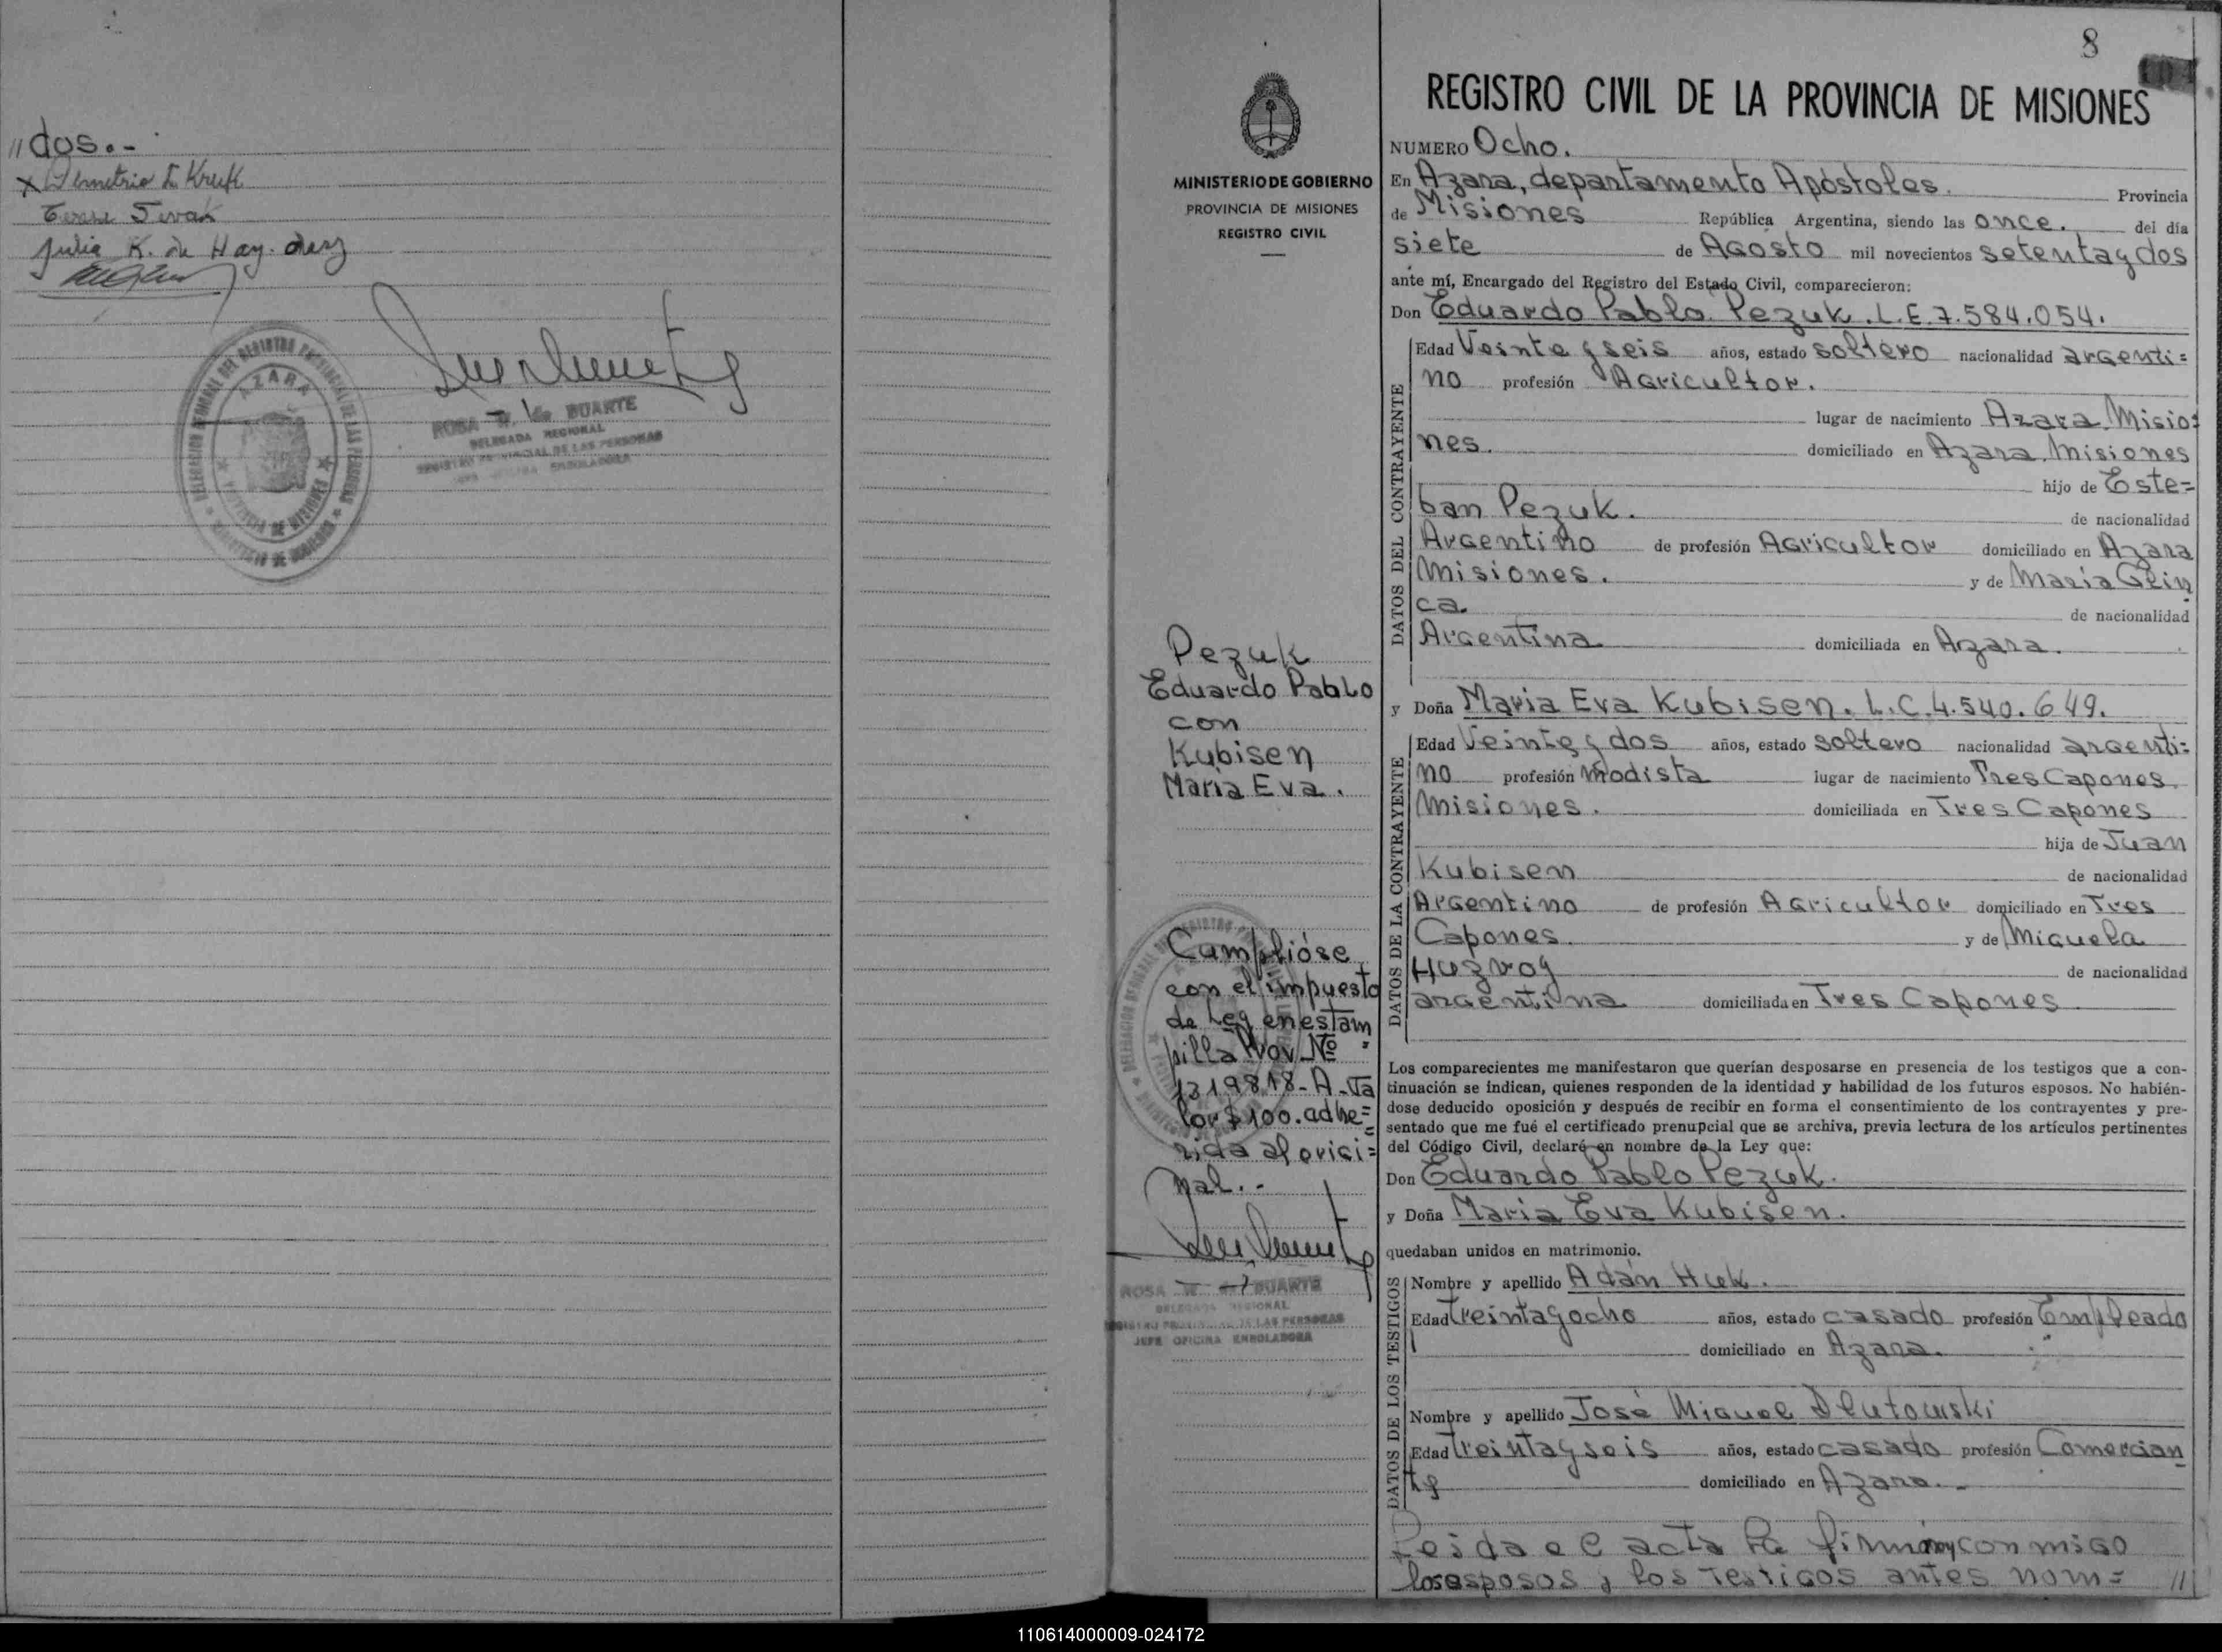 //dos.-
Demetrio L. Kruk
Julia K. de Hay. desz
DELEGACION GENERAL DEL REGISTRO PROVINCIAL DE LAS PERSONAS
AZARA
PROVINCIA DE MISIONES
ROSA DUARTE
DELEGADA REGIONAL
REGISTRO PROVINCIAL DE LAS PERSONAS
JEFE OFICINA ENROLADORA
MINISTERIO DE GOBIERNO
PROVINCIA DE MISIONES
REGISTRO CIVIL
Pezuk
Eduardo Pablo
con
Kubisen
Maria Eva.
Cumplióse
con el impuesto
de Ley en estam
pilla Prov. Nº
1319818-A-Va
lor $100.adhe=
rida al origi=
nal.-
ROSA DUARTE
DELEGADA REGIONAL
REGISTRO PROVINCIAL DE LAS PERSONAS
JEFE OFICINA ENROLADORA
8
REGISTRO CIVIL DE LA PROVINCIA DE MISIONES
NUMERO Ocho.
En Azara, departamento Apóstoles. Provincia
de Misiones República Argentina, siendo las once. del día
siete de Agosto mil novecientos setenta y dos
ante mí, Encargado del Registro del Estado Civil, comparecieron:
Don Eduardo Pablo Pezuk. L.E.7.584.054.
DATOS DEL CONTRAYENTE
Edad Veinte y seis años, estado soltero nacionalidad argenti=
no profesión Agricultor.
lugar de nacimiento Azara Misio=
nes. domiciliado en Azara. Misiones
hijo de Este=
ban Pezuk. de nacionalidad
Argentino de profesión Agricultor domiciliado en Azara
Misiones. y de Maria Glin
ca. de nacionalidad
Argentina domiciliada en Azara.
y Doña Maria Eva Kubisen. L.C.4.540.649.
DATOS DE LA CONTRAYENTE
Edad Veinte y dos años, estado soltero nacionalidad argenti=
no profesión modista lugar de nacimiento Tres Capones.
Misiones. domiciliada en Tres Capones
hija de Juan
Kubisen de nacionalidad
Argentino de profesión Agricultor domiciliado en Tres
Capones. y de Miguela
Huzvoy de nacionalidad
argentina domiciliada en Tres Capones
Los comparecientes me manifestaron que querían desposarse en presencia de los testigos que a con-
tinuación se indican, quienes responden de la identidad y habilidad de los futuros esposos. No habién-
dose deducido oposición y después de recibir en forma el consentimiento de los contrayentes y pre-
sentado que me fué el certificado prenupcial que se archiva, previa lectura de los artículos pertinentes
del Código Civil, declaré en nombre de la Ley que:
Don Eduardo Pablo Pezuk.
y Doña Maria Eva Kubisen.
quedaban unidos en matrimonio.
DATOS DE LOS TESTIGOS
Nombre y apellido Adán Huk.
Edad treinta y ocho años, estado casado profesión Empleado
domiciliado en Azara.
Nombre y apellido José Miguel Dlutowski
Edad treinta y seis años, estado casado profesión Comercian
te domiciliado en Azara.-
Leida el acta la firman conmigo
los esposos y los testigos antes nom= //
110614000009-024172